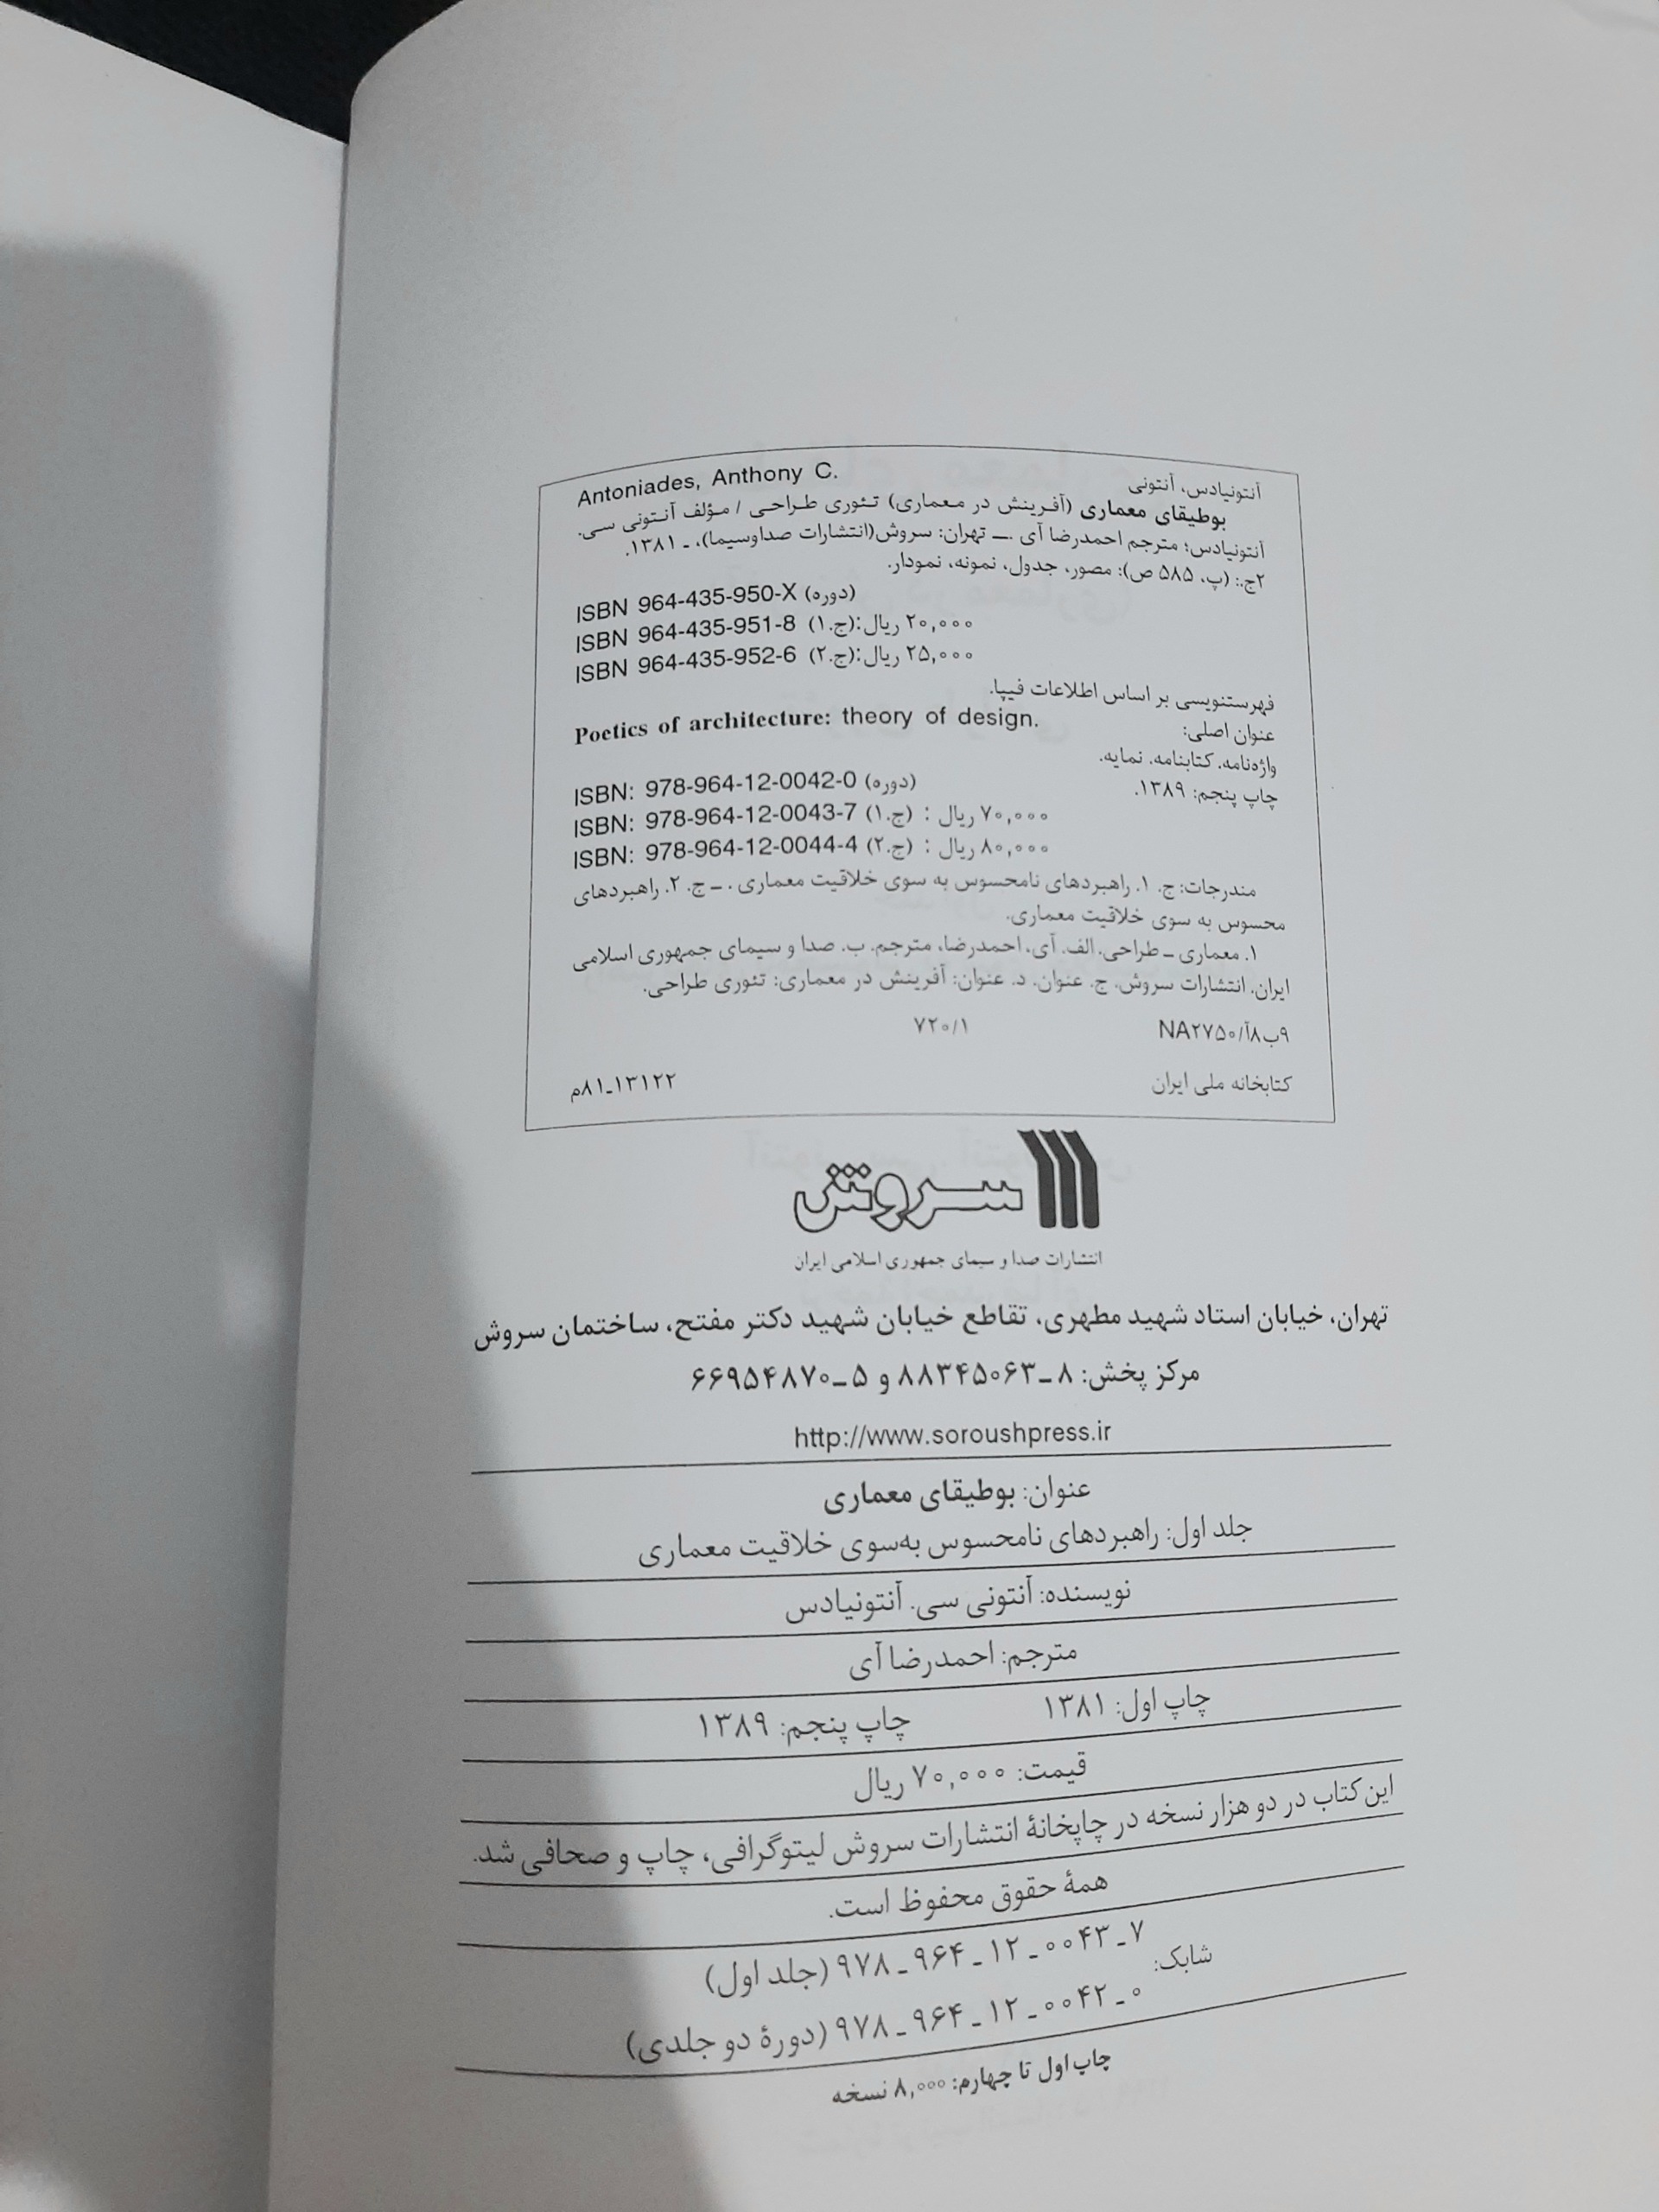 آنتونیادس، آنتونی Antoniades, Anthony C.
بوطیقای معماری (آفرینش در معماری) تئوری طراحی / مؤلف آنتونی سی.
آنتونیادس؛ مترجم احمدرضا آی .ــ تهران: سروش(انتشارات صداوسیما)، ـ ۱۳۸۱.
۲ج.: (پ، ۵۸۵ ص): مصور، جدول، نمونه، نمودار.
ISBN 964-435-950-X (دوره)
ISBN 964-435-951-8 (ج.۱):۲۰,۰۰۰ ریال
ISBN 964-435-952-6 (ج.۲):۲۵,۰۰۰ ریال
فهرستنویسی بر اساس اطلاعات فیپا.
عنوان اصلی: Poetics of architecture: theory of design.
واژه‌نامه. کتابنامه. نمایه.
چاپ پنجم: ۱۳۸۹.
ISBN: 978-964-12-0042-0 (دوره)
ISBN: 978-964-12-0043-7 (ج.۱) : ۷۰,۰۰۰ ریال
ISBN: 978-964-12-0044-4 (ج.۲) : ۸۰,۰۰۰ ریال
مندرجات: ج. ۱. راهبردهای نامحسوس به سوی خلاقیت معماری . ــ ج. ۲. راهبردهای
محسوس به سوی خلاقیت معماری.
۱. معماری ــ طراحی. الف. آی، احمدرضا، مترجم. ب. صدا و سیمای جمهوری اسلامی
ایران. انتشارات سروش. ج. عنوان. د. عنوان: آفرینش در معماری: تئوری طراحی.
۹ب۸آ/NA۲۷۵۰ ۷۲۰/۱
کتابخانه ملی ایران ۱۳۱۲۲ـ۸۱م
سروش
انتشارات صدا و سیمای جمهوری اسلامی ایران
تهران، خیابان استاد شهید مطهری، تقاطع خیابان شهید دکتر مفتح، ساختمان سروش
مرکز پخش: ۸ ــ ۸۸۳۴۵۰۶۳ و ۵ ــ ۶۶۹۵۴۸۷۰
http://www.soroushpress.ir
عنوان: بوطیقای معماری
جلد اول: راهبردهای نامحسوس به‌سوی خلاقیت معماری
نویسنده: آنتونی سی. آنتونیادس
مترجم: احمدرضا آی
چاپ اول: ۱۳۸۱ چاپ پنجم: ۱۳۸۹
قیمت: ۷۰,۰۰۰ ریال
این کتاب در دو هزار نسخه در چاپخانهٔ انتشارات سروش لیتوگرافی، چاپ و صحافی شد.
همهٔ حقوق محفوظ است.
شابک: ۷ ـ ۰۰۴۳ ـ ۱۲ ـ ۹۶۴ ـ ۹۷۸ (جلد اول)
۰ ـ ۰۰۴۲ ـ ۱۲ ـ ۹۶۴ ـ ۹۷۸ (دورهٔ دو جلدی)
چاپ اول تا چهارم: ۸,۰۰۰ نسخه